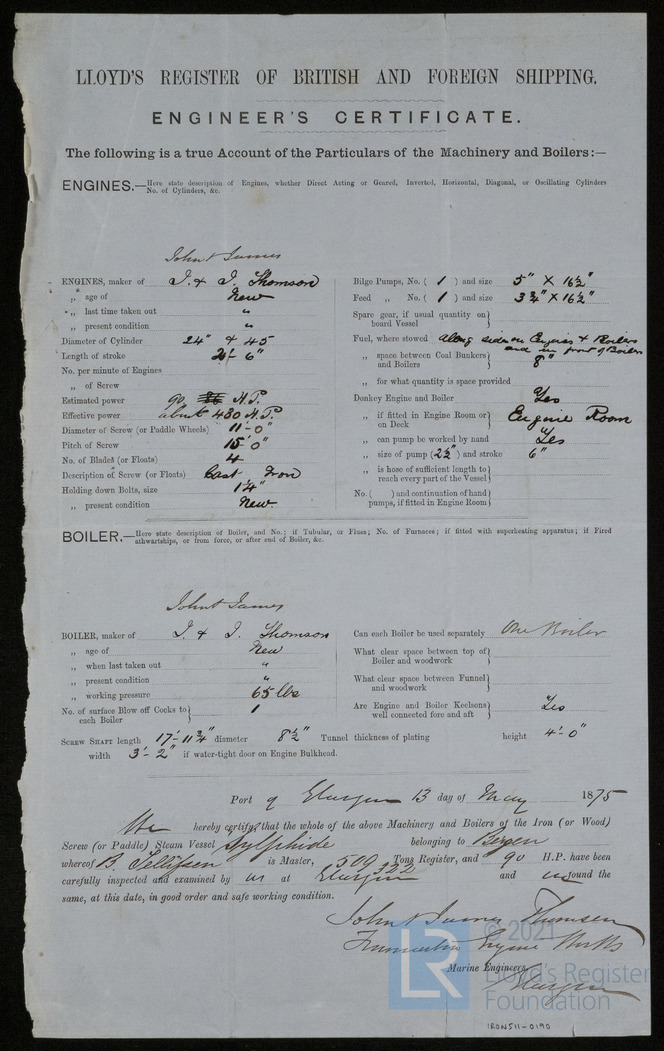 LLOYD'S REGISTER OF BRITISH AND FOREIGN SHIPPING.
ENGINEER'S CERTIFICATE.
The following is a true Account of the Particulars of the Machinery and Boilers:—
ENGINES.—Here state description of Engines, whether Direct Acting or Geared, Inverted, Horizontal, Diagonal, or Oscillating Cylinders
No. of Cylinders, &c.
John & James
ENGINES, maker of J. & J. Thomson
„ age of New
„ last time taken out "
„ present condition "
Diameter of Cylinder 24" & 45
Length of stroke 2'- 6"
No. per minute of Engines
„ of Screw
Estimated power 90 H.P.
Effective power about 430 H.P.
Diameter of Screw (or Paddle Wheels) 11'-0"
Pitch of Screw 15'0"
No. of Blades (or Floats) 4
Description of Screw (or Floats) Cast Iron
Holding down Bolts, size 1¼"
„ present condition New.
Bilge Pumps, No. ( 1 ) and size 5" X 16½"
Feed „ No. ( 1 ) and size 3¾" X 16½"
Spare gear, if usual quantity on
board Vessel
Fuel, where stowed along side on Engines & Boilers
and in front of Boilers
„ space between Coal Bunkers
and Boilers 8"
„ for what quantity is space provided
Donkey Engine and Boiler Yes
„ if fitted in Engine Room or
on Deck Engine Room
„ can pump be worked by hand Yes
„ size of pump (2½") and stroke 6"
„ is hose of sufficient length to
reach every part of the Vessel
No. ( ) and continuation of hand
pumps, if fitted in Engine Room
BOILER.—Here state description of Boiler, and No.; if Tubular, or Flues; No. of Furnaces; if fitted with superheating apparatus; if Fired
athwartships, or from fore, or after end of Boiler, &c.
John & James
BOILER, maker of J. & J. Thomson
„ age of New
„ when last taken out "
„ present condition "
„ working pressure 65 lbs
No. of surface Blow off Cocks to
each Boiler 1
Can each Boiler be used separately One Boiler
What clear space between top of
Boiler and woodwork
What clear space between Funnel
and woodwork
Are Engine and Boiler Keelsons
well connected fore and aft Yes
SCREW SHAFT length 17'-11¾" diameter 8½" Tunnel thickness of plating height 4'-0"
width 3'-2" if water-tight door on Engine Bulkhead.
Port of Glasgow 13 day of May 1875
We hereby certify that the whole of the above Machinery and Boilers of the Iron (or Wood)
Screw (or Paddle) Steam Vessel Sylphide belonging to Bergen
whereof B. is Master, 509 Tons Register, and 90 H.P. have been
322
carefully inspected and examined by us at Glasgow and we found the
same, at this date, in good order and safe working condition.
John & James Thomson
Engine Works
Marine Engineers.
Glasgow
© 2021
LR
Lloyd's Register
Foundation
IRON511-0190